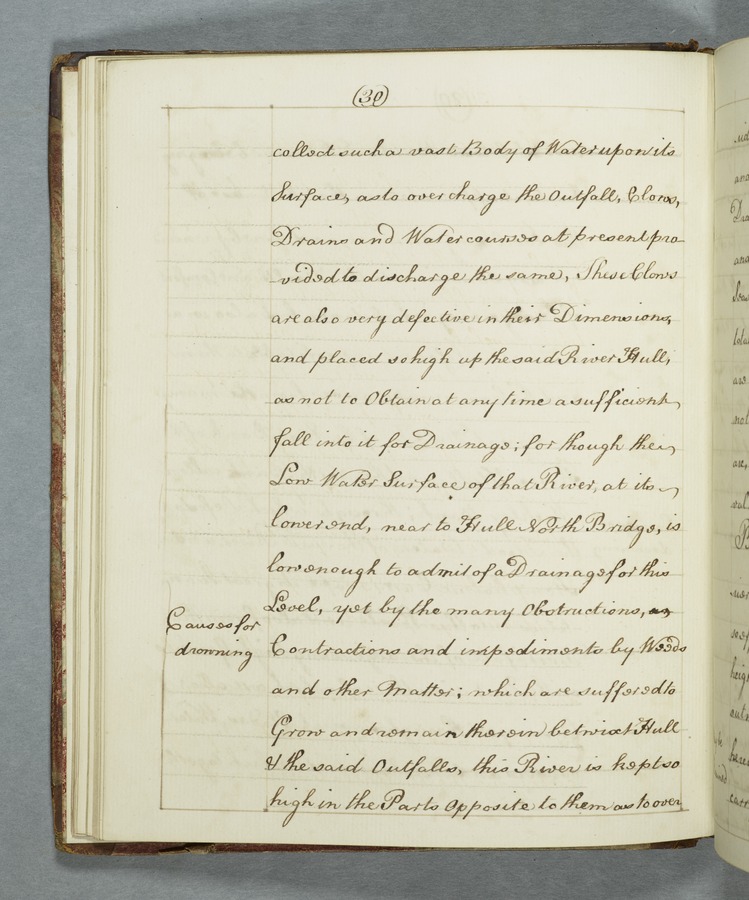 (30)
collect such a vast Body of Water upon its
Surface, as to over charge the Outfall, Clows,
Drains and Water courses at present pro
vided to discharge the same, These Clows
are also very defective in their Dimensions,
and placed so high up the said River Hull,
as not to Obtain at any time a sufficient
fall into it for Drainage; for though the
Low Water Surface of that River, at its
lower end, near to Hull North Bridge, is
low enough to admit of a Drainage for this
Level, yet by the many Obstructions,
Causes for
drowning
Contractions and impediments by Weeds
and other Matter; which are suffered to
Grow and remain therein betwixt Hull
& the said Outfalls, this River is kept so
high in the Parts Opposite to them as to over